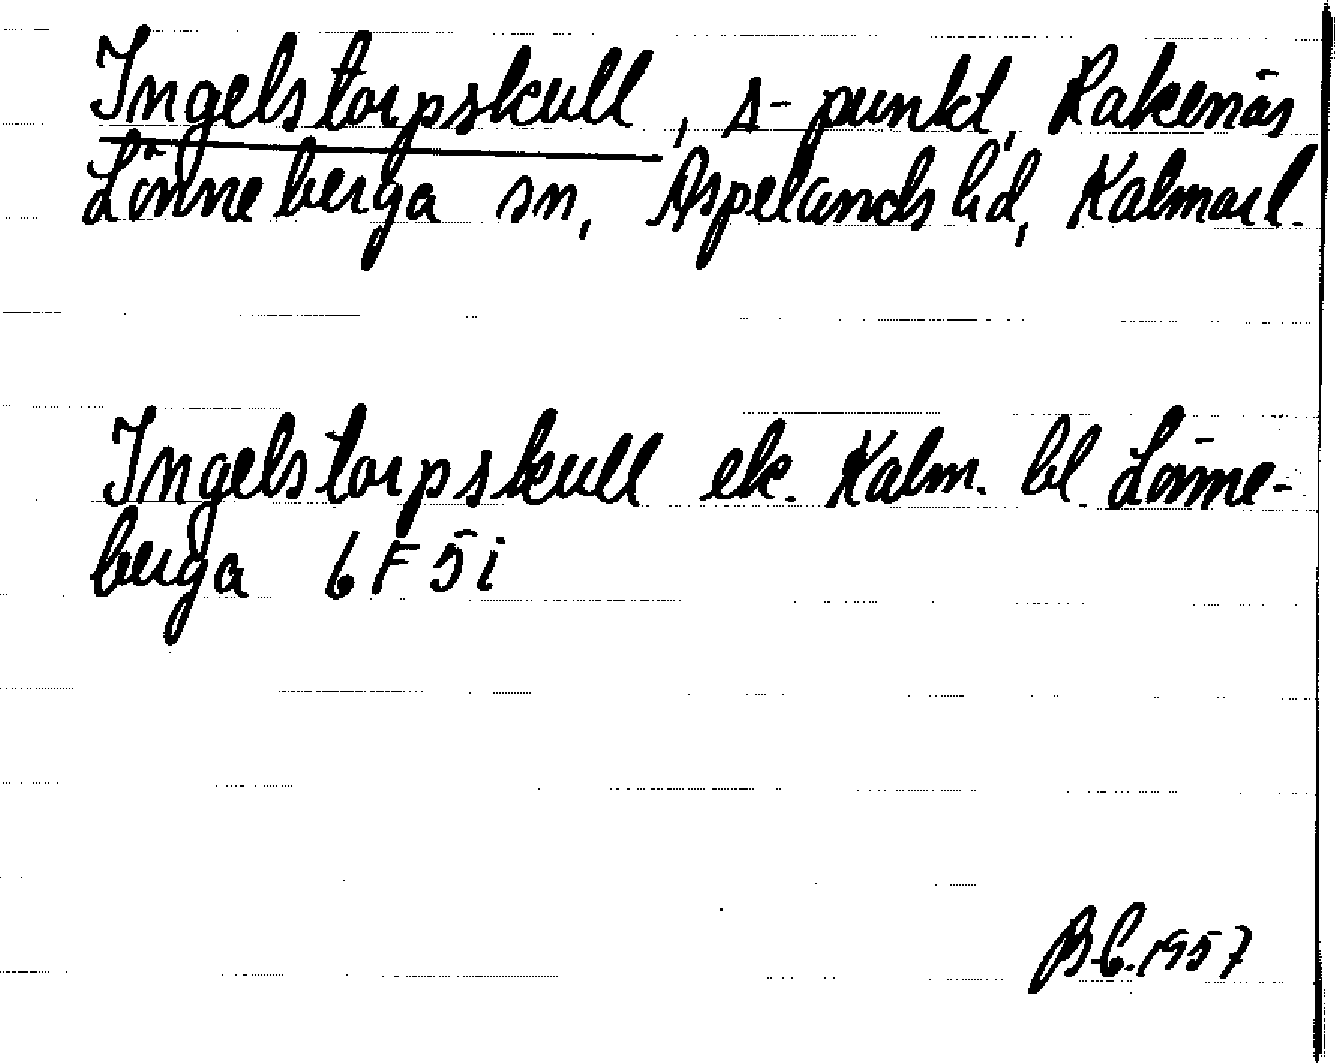 Ingelstorpskull, s-punkt, Rakenäs
Lönneberga sn, Aspelands hd, Kalmar l.
Ingelstorpskull ek. Kalm. bl Lönne-
berga 6F5i
B.C. 1957